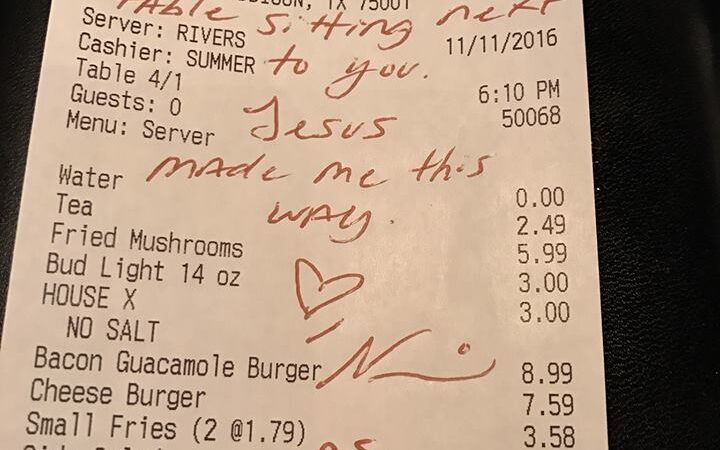 TABLE sitting next
TX 75001
Server: RIVERS
11/11/2016
Cashier: SUMMER
to you.
Table 4/1
6:10 PM
Guests: 0
Jesus
50068
Menu: Server
made me this
Water
0.00
way.
Tea
2.49
Fried Mushrooms
5.99
Bud Light 14 oz
3.00
HOUSE X
3.00
NO SALT
Bacon Guacamole Burger
8.99
Cheese Burger
7.59
Small Fries (2 @1.79)
3.58